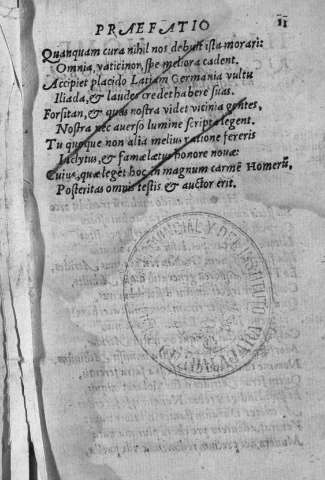 PRAEFATIO 11
Quanquam cura nihil nos debuit ista morari:
Omnia, vaticinor, spe meliora cadent.
Accipiet placido Latiam Germania vultu
Iliada, & laudes credet habere suas.
Forsitan, & quas nostra videt vicinia gentes,
Nostra nec averso lumine scripta legent.
Tu quoque non alia melius ratione fereris
Inclytus, & fama, lætus honore novæ:
Cuius, quæ leget hoc in magnum carmē Homerū,
Posteritas omnis testis & auctor erit.
PROVINCIAL Y DEL INSTITUTO